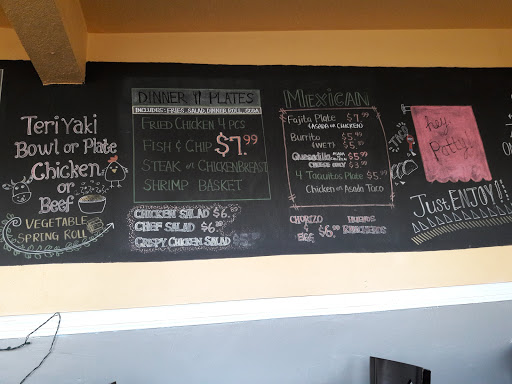 TeriYaki
Bowl or Plate
Chicken
or
Beef
VEGETABLE
SPRING ROLL
DINNER PLATES
INCLUDES: FRIES, SALAD, DINNER ROLL, SODA
FRIED CHICKEN 4 PCS
FISH & CHIP $7.99
STEAK OR CHICKEN BREAST
SHRIMP BASKET
CHICKEN SALAD $6.
CHEF SALAD $6.
CRISPY CHICKEN SALAD
MEXICAN
Fajita Plate $7.99
(ASADA OR CHICKEN)
Burrito $5.99
(WET) $5.
Quesadilla $5.99
CHEESE ONLY $3.99
4 Taquitos Plate $5.99
Chicken or Asada Taco
CHORIZO
&
EGG $6.
HUEVOS
RANCHEROS
TACO
hey
Patty!
Just ENJOY!!